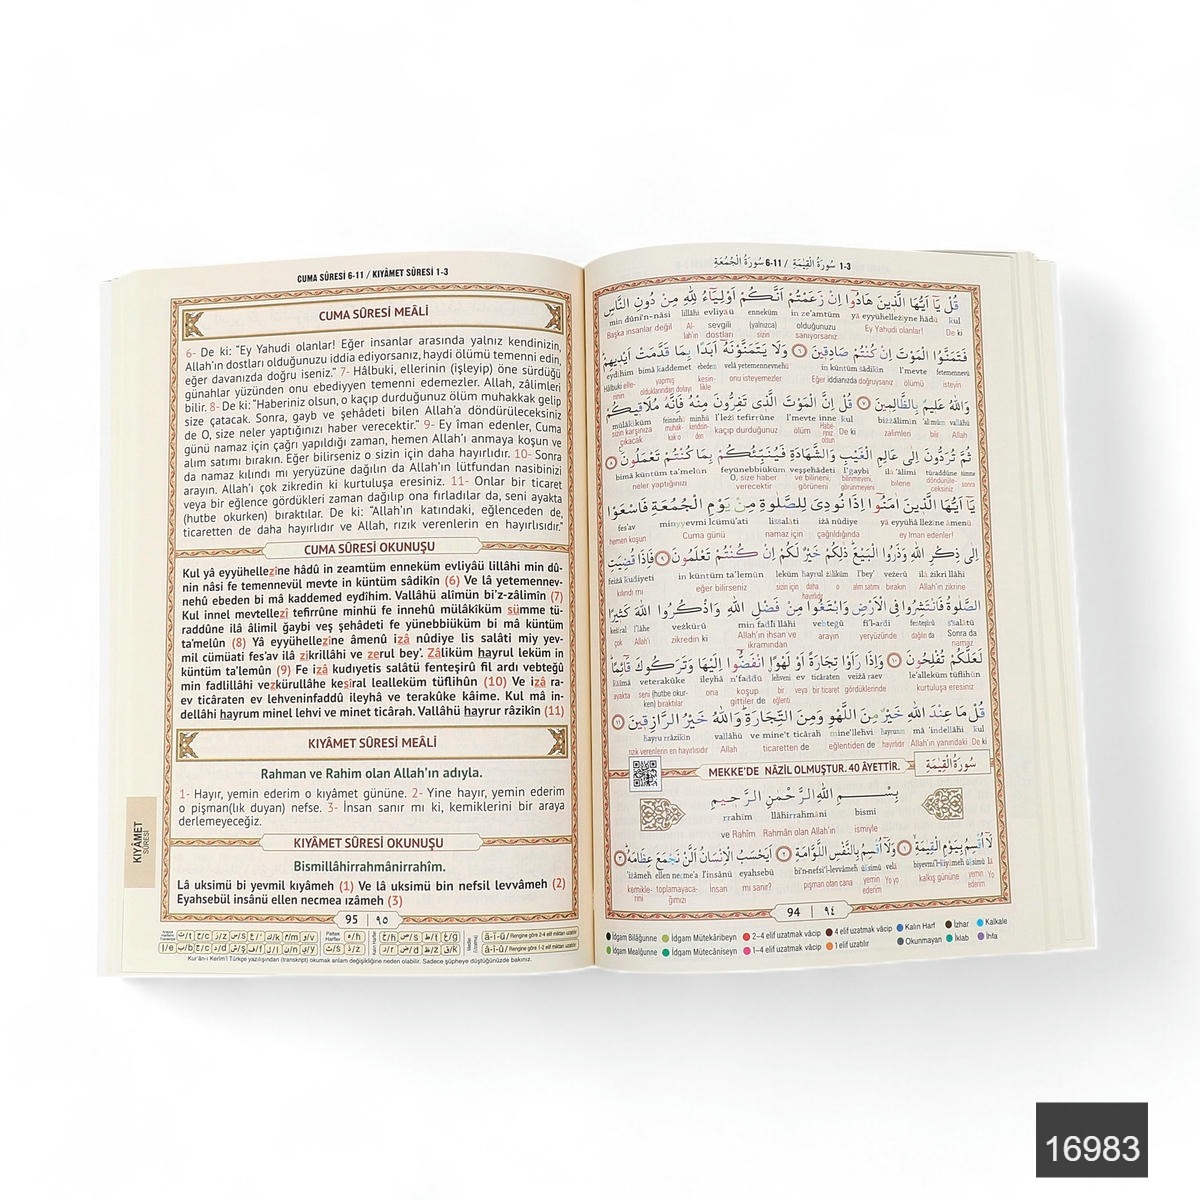 CUMA SÛRESİ 6-11 / KIYÂMET SÛRESİ 1-3
CUMA SÛRESİ MEÂLİ
6- De ki: "Ey Yahudi olanlar! Eğer insanlar arasında yalnız kendinizin,
Allah'ın dostları olduğunuzu iddia ediyorsanız, haydi ölümü temenni edin,
eğer davanızda doğru iseniz." 7- Hâlbuki, ellerinin (işleyip) öne sürdüğü
günahlar yüzünden onu ebediyyen temenni edemezler. Allah, zâlimleri
bilir. 8- De ki: "Haberiniz olsun, o kaçıp durduğunuz ölüm muhakkak gelip
size çatacak. Sonra, gayb ve şehâdeti bilen Allah'a döndürüleceksiniz
de O, size neler yaptığınızı haber verecektir." 9- Ey îman edenler, Cuma
günü namaz için çağrı yapıldığı zaman, hemen Allah'ı anmaya koşun ve
alım satımı bırakın. Eğer bilirseniz o sizin için daha hayırlıdır. 10- Sonra
da namaz kılındı mı yeryüzüne dağılın da Allah'ın lütfundan nasibinizi
arayın. Allah'ı çok zikredin ki kurtuluşa eresiniz. 11- Onlar bir ticaret
veya bir eğlence gördükleri zaman dağılıp ona fırladılar da, seni ayakta
(hutbe okurken) bıraktılar. De ki: "Allah'ın katındaki, eğlenceden de,
ticaretten de daha hayırlıdır ve Allah, rızık verenlerin en hayırlısıdır."
CUMA SÛRESİ OKUNUŞU
Kul yâ eyyühellezîne hâdû in zeamtüm enneküm evliyâü lillâhi min dû-
nin nâsi fe temennevül mevte in küntüm sâdikîn (6) Ve lâ yetemennev-
nehû ebeden bi mâ kaddemed eydîhim. Vallâhü alîmün bi'z-zâlimîn (7)
Kul innel mevtellezî tefirrûne minhü fe innehû mülâkîküm sümme tü-
raddûne ilâ âlimil ğaybi veş şehâdeti fe yünebbiüküm bi mâ küntüm
ta'melûn (8) Yâ eyyühellezîne âmenû izâ nûdiye lis salâti miy yev-
mil cümüati fes'av ilâ zikrillâhi ve zerul bey'. Zâliküm hayrul leküm in
küntüm ta'lemûn (9) Fe izâ kudıyetis salâtü fenteşirû fil ardı vebteğû
min fadlillâhi vezkürullâhe kesîral lealleküm tüflihûn (10) Ve izâ ra-
ev ticâraten ev lehveninfaddû ileyhâ ve terakûke kâime. Kul mâ in-
dellâhi hayrum minel lehvi ve minet ticârah. Vallâhü hayrur râzikîn (11)
KIYÂMET SÛRESİ MEÂLİ
Rahman ve Rahim olan Allah'ın adıyla.
1- Hayır, yemin ederim o kıyamet gününe. 2- Yine hayır, yemin ederim
o pişman(lık duyan) nefse. 3- İnsan sanır mı ki, kemiklerini bir araya
derlemeyeceğiz.
KIYÂMET SÛRESİ OKUNUŞU
Bismillâhirrahmânirrahîm.
Lâ uksimü bi yevmil kıyâmeh (1) Ve lâ uksimü bin nefsil levvâmeh (2)
Eyahsebül insânü ellen necmea ızâmeh (3)
95 | ٩٥
KIYÂMET
SÛRESİ
Kur'ân-ı Kerîm'i Türkçe yazılışından (transkript) okumak anlam değişikliğine neden olabilir. Sadece şüpheye düştüğünüzde bakınız.
1-3 سُورَةُ الْقِيٰمَةِ / 6-11 سُورَةُ الْجُمُعَةِ
قُلْ يَٓا اَيُّهَا الَّذ۪ينَ هَادُٓوا اِنْ زَعَمْتُمْ اَنَّكُمْ اَوْلِيَٓاءُ لِلّٰهِ مِنْ دُونِ النَّاسِ
kul yâ eyyühelleẕîne hâdû in ze'amtüm enneküm evliyâü lillâhi min dûni'n-nâsi
De ki Ey Yahudi olanlar! olduğunuzu sanıyorsanız (yalnızca) sizin sevgili dostları Allah'ın Başka insanlar değil
فَتَمَنَّوُا الْمَوْتَ اِنْ كُنْتُمْ صَادِق۪ينَ ﴿٦﴾ وَلَا يَتَمَنَّوْنَهُٓ اَبَدًا بِمَا قَدَّمَتْ اَيْد۪يهِمْ
fetemennevü l'mevte in küntüm sâdikîn velâ yetemennevnehû ebeden bimâ kaddemet eydîhim
isteyin ölümü Eğer iddianızda doğruysanız onu isteyemezler
وَاللّٰهُ عَل۪يمٌ بِالظَّالِم۪ينَ ﴿٧﴾ قُلْ اِنَّ الْمَوْتَ الَّذ۪ي تَفِرُّونَ مِنْهُ فَاِنَّهُ مُلَاق۪يكُمْ
vallâhü 'alîmün bizzâlimîn kul inne l'mevte l'leẕî tefirrûne minhü feinnehû mülâkîküm
Allah bilir zalimleri De ki ölüm kaçıp durduğunuz
ثُمَّ تُرَدُّونَ اِلٰى عَالِمِ الْغَيْبِ وَالشَّهَادَةِ فَيُنَبِّئُكُمْ بِمَا كُنْتُمْ تَعْمَلُونَ ﴿٨﴾
sümme türaddûne ilâ 'âlimi l'ğaybi veşşehâdeti feyünebbiüküm bimâ küntüm ta'melûn
sonra döndürüleceksiniz bilene bilinmeyeni, görünmeyeni ve bilineni, görüneni O, size haber verecektir neler yaptığınızı
يَٓا اَيُّهَا الَّذ۪ينَ اٰمَنُٓوا اِذَا نُودِيَ لِلصَّلٰوةِ مِنْ يَوْمِ الْجُمُعَةِ فَاسْعَوْا
yâ eyyühâ lleẕîne âmenû iẕâ nûdiye lissalâti minyyevmi lcümü'ati fes'av
ey İman edenler! çağrıldığında namaz için Cuma günü hemen koşun
اِلٰى ذِكْرِ اللّٰهِ وَذَرُوا الْبَيْعَ ذٰلِكُمْ خَيْرٌ لَكُمْ اِنْ كُنْتُمْ تَعْلَمُونَ ﴿٩﴾ فَاِذَا قُضِيَتِ
ilâ ẕikri llâhi veẕerû l'bey' ẕâliküm hayrul leküm in küntüm ta'lemûn feiẕâ kudiyeti
Allah'ın zikrine bırakın alım satımı o daha hayırlıdır sizin için eğer bilirseniz kılındı mı
الصَّلٰوةُ فَانْتَشِرُوا فِي الْاَرْضِ وَابْتَغُوا مِنْ فَضْلِ اللّٰهِ وَاذْكُرُوا اللّٰهَ كَث۪يرًا
s'salâtü fenteşirû fi'l-ardi vebteğû min fadli llâhi veẕkürû l'lâhe kesîral
Sonra da namaz dağılın da yeryüzünde arayın Allah'ın ihsan ve ikramından zikredin ki Allah'ı çok
لَعَلَّكُمْ تُفْلِحُونَ ﴿١٠﴾ وَاِذَا رَاَوْا تِجَارَةً اَوْ لَهْوًاۨ انْفَضُّٓوا اِلَيْهَا وَتَرَكُوكَ قَٓائِمًا
le'alleküm tüflihûn veiẕâ raev ticâraten ev lehveni n'faddû ileyhâ veterakûke kâimâ
kurtuluşa eresiniz gördüklerinde bir ticaret veya bir eğlenti koşup gittiler de ona seni (hutbe okurken) bıraktılar ayakta
قُلْ مَا عِنْدَ اللّٰهِ خَيْرٌ مِنَ اللَّهْوِ وَمِنَ التِّجَارَةِ وَاللّٰهُ خَيْرُ الرَّازِق۪ينَ ﴿١١﴾
kul mâ 'indellâhi hayrun mine'llehvi ve mine't ticârah vallâhü hayru rrâzikîn
De ki Allah'ın yanındaki hayırlıdır eğlentiden de ticaretten de Allah rızık verenlerin en hayırlısıdır
سُورَةُ الْقِيٰمَةِ MEKKE'DE NÂZİL OLMUŞTUR. 40 ÂYETTİR.
بِسْمِ اللّٰهِ الرَّحْمٰنِ الرَّح۪يمِ
bismi llâhirrahmâni rrahîm
ismiyle Rahmân olan Allah'ın ve Rahîm
لَٓا اُقْسِمُ بِيَوْمِ الْقِيٰمَةِ ﴿١﴾ وَلَٓا اُقْسِمُ بِالنَّفْسِ اللَّوَّامَةِ ﴿٢﴾ اَيَحْسَبُ الْاِنْسَانُ اَلَّنْ نَجْمَعَ عِظَامَهُ ﴿٣﴾
lâ uksimü biyevmi'l-kıyâmeh velâ uksimü bi'n-nefsi'l-levvâmeh eyahsebü l'insânü ellen necme'a 'izâmeh
Yo yemin ederim kalkış gününe Yo yo yemin ederim pişman olan cana mı sanır? İnsan toplamayacağımızı kemiklerini
94 | ٩٤
İdgam Bilâğunne İdgam Mütekâribeyn 2-4 elif uzatmak vâcip 4 elif uzatmak vâcip Kalın Harf İzhar Kalkale
İdgam Mealğunne İdgam Mütecâniseyn 1-4 elif uzatmak vâcip 1 elif uzatılır Okunmayan İklab İhfa
16983